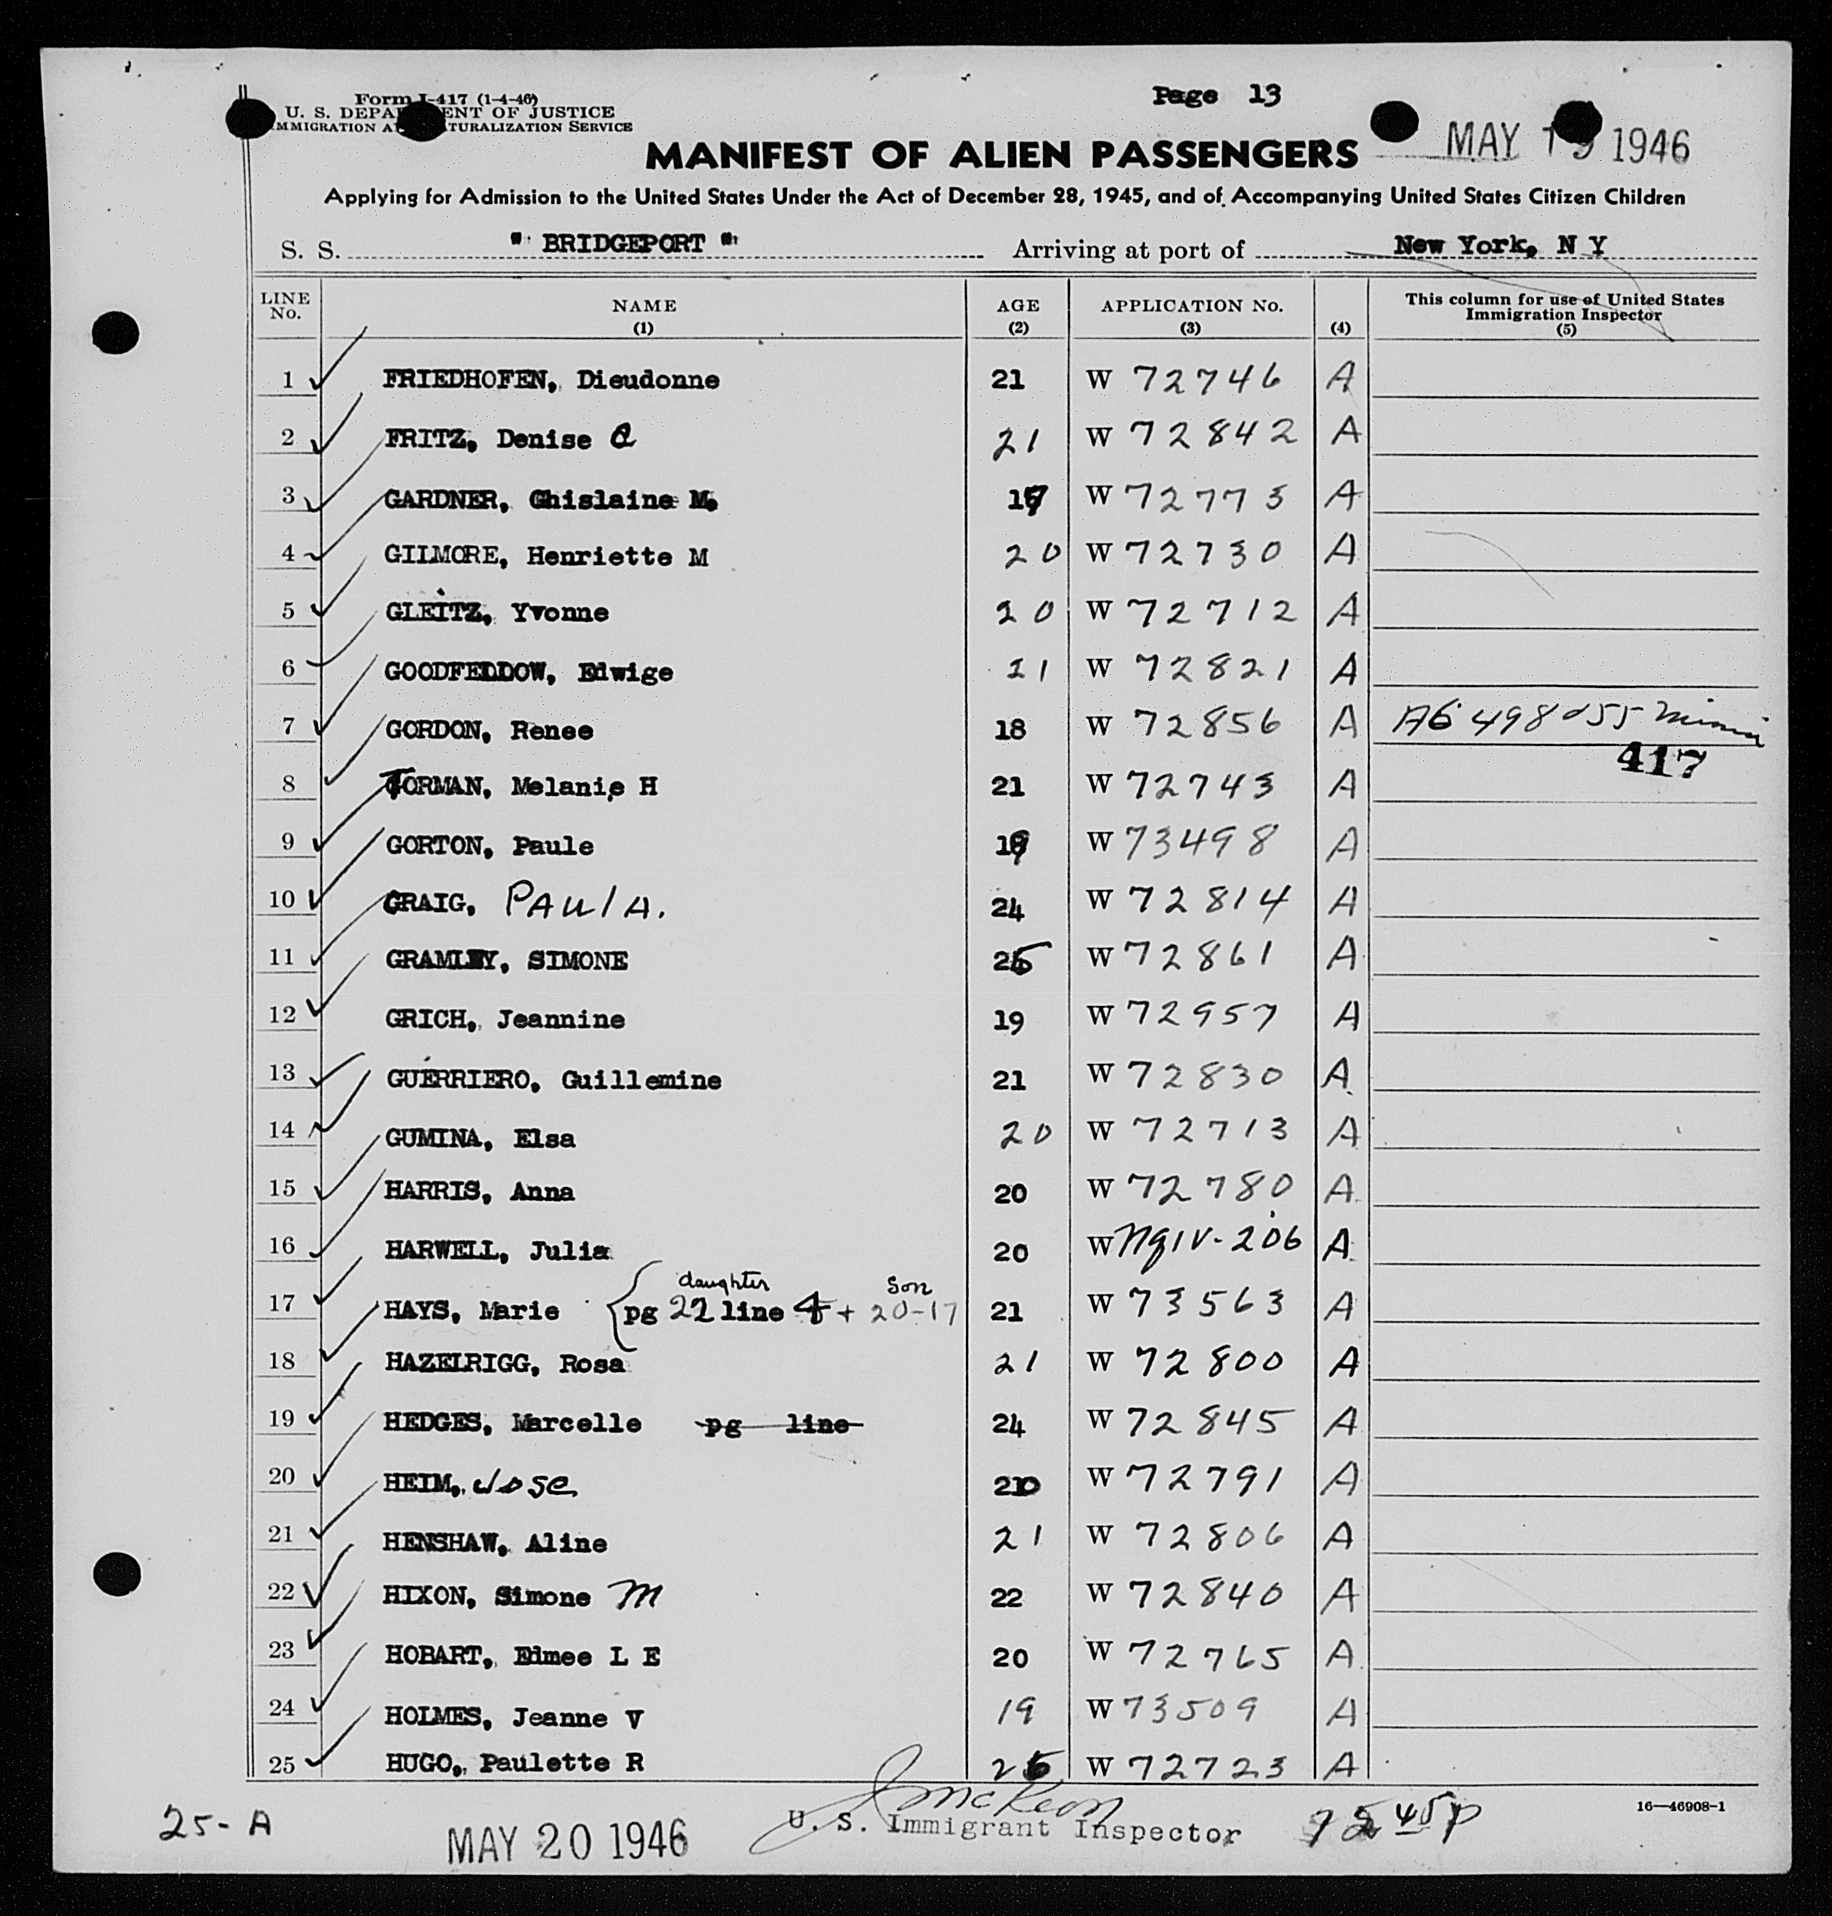 Page 13
Form I-417 (1-4-46)
U. S. DEPARTMENT OF JUSTICE
IMMIGRATION AND NATURALIZATION SERVICE
MAY 19 1946
MANIFEST OF ALIEN PASSENGERS
Applying for Admission to the United States Under the Act of December 28, 1945, and of Accompanying United States Citizen Children
S. S. " BRIDGEPORT " Arriving at port of New York, N Y
LINE No. NAME (1) AGE (2) APPLICATION No. (3) (4) This column for use of United States Immigration Inspector (5)
1 FRIEDHOFEN, Dieudonne 21 W 72746 A
2 FRITZ, Denise C 21 W 72842 A
3 GARDNER, Ghislaine M. 17 W 72773 A
4 GILMORE, Henriette M 20 W 72730 A
5 GLEITZ, Yvonne 20 W 72712 A
6 GOODFELLOW, Edwige 21 W 72821 A
7 GORDON, Renee 18 W 72856 A A6 498 055
417
8 TORMAN, Melanie H 21 W 72743 A
9 GORTON, Paule 19 W 73498 A
10 CRAIG, PAULA. 24 W 72814 A
11 GRAMLEY, SIMONE 25 W 72861 A
12 GRICH, Jeannine 19 W 72957 A
13 GUERRIERO, Guillemine 21 W 72830 A
14 GUMINA, Elsa 20 W 72713 A
15 HARRIS, Anna 20 W 72780 A
16 HARWELL, Julia 20 W NQIV-206 A
daughter son
17 HAYS, Marie pg 22 line 4 + 20-17 21 W 73563 A
18 HAZELRIGG, Rosa 21 W 72800 A
19 HEDGES, Marcelle pg line 24 W 72845 A
20 HEIM, Jose 20 W 72791 A
21 HENSHAW, Aline 21 W 72806 A
22 HIXON, Simone M 22 W 72840 A
23 HOBART, Edmee L E 20 W 72765 A
24 HOLMES, Jeanne V 19 W 73509 A
25 HUGO, Paulette R 25 W 72723 A
25-A
MAY 20 1946
J McKeon
U. S. Immigrant Inspector
16—46908-1